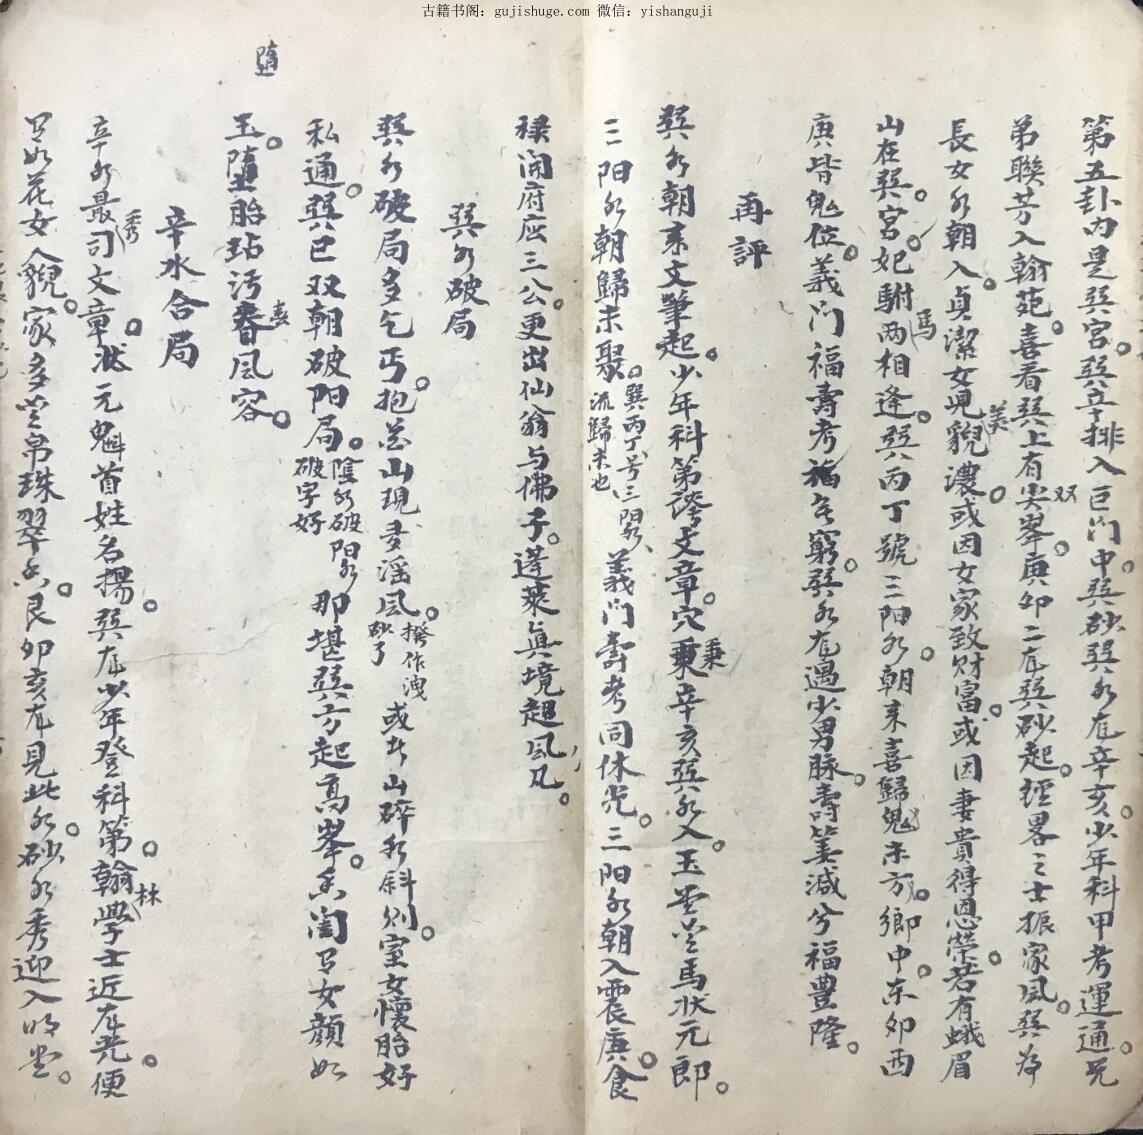 古籍书阁: gujishuge.com 微信: yishanguji
第五卦内是巽宮。巽辛排入巨门中。巽砂巽水龙辛亥。少年科甲考運通。兄
弟聯芳入翰苑。喜看巽上有双尖峯。庚卯二龙巽砂起。經畧之士振家風。巽为
長女水朝入。貞潔女児美貌濃。或因女家致财富。或因妻貴得恩榮。若有蛾眉
山在巽宮。妃駙马两相逢。巽丙丁號三阳水。朝来喜歸鬼未方。鄉中东卯西
庚皆鬼位。義门福壽考福无窮。巽水龙遇少男脉。壽筭減兮福豊隆。
再評
巽水朝来文筆起。少年科第誇文章。穴乗辛亥巽水入。玉堂金馬状元郎。
三阳水朝歸未聚。巽丙丁号三阳水流歸未也 義门壽考同休光。三阳水朝入震庚。食
禄開府应三公。更出仙翁与佛子。蓬萊真境超凡風。
巽水破局
巽水破局多乞丐。抱花山現多淫風。撥作洩砂了 或如山碎和斜側。室女懷胎好
私通。巽巳双朝破阳局。陰水破阳水破字好 那堪巽方起高峯。香闺马女顔如
玉。墮胎玷污春風容。
墮
辛水合局
辛水最秀司文章。状元魁首姓名揚。巽龙少年登科第。翰林學士近龙光。便
是如花女人貌。家多金帛珠翠香。艮卯亥龙見此水。砂水秀迎入明堂。